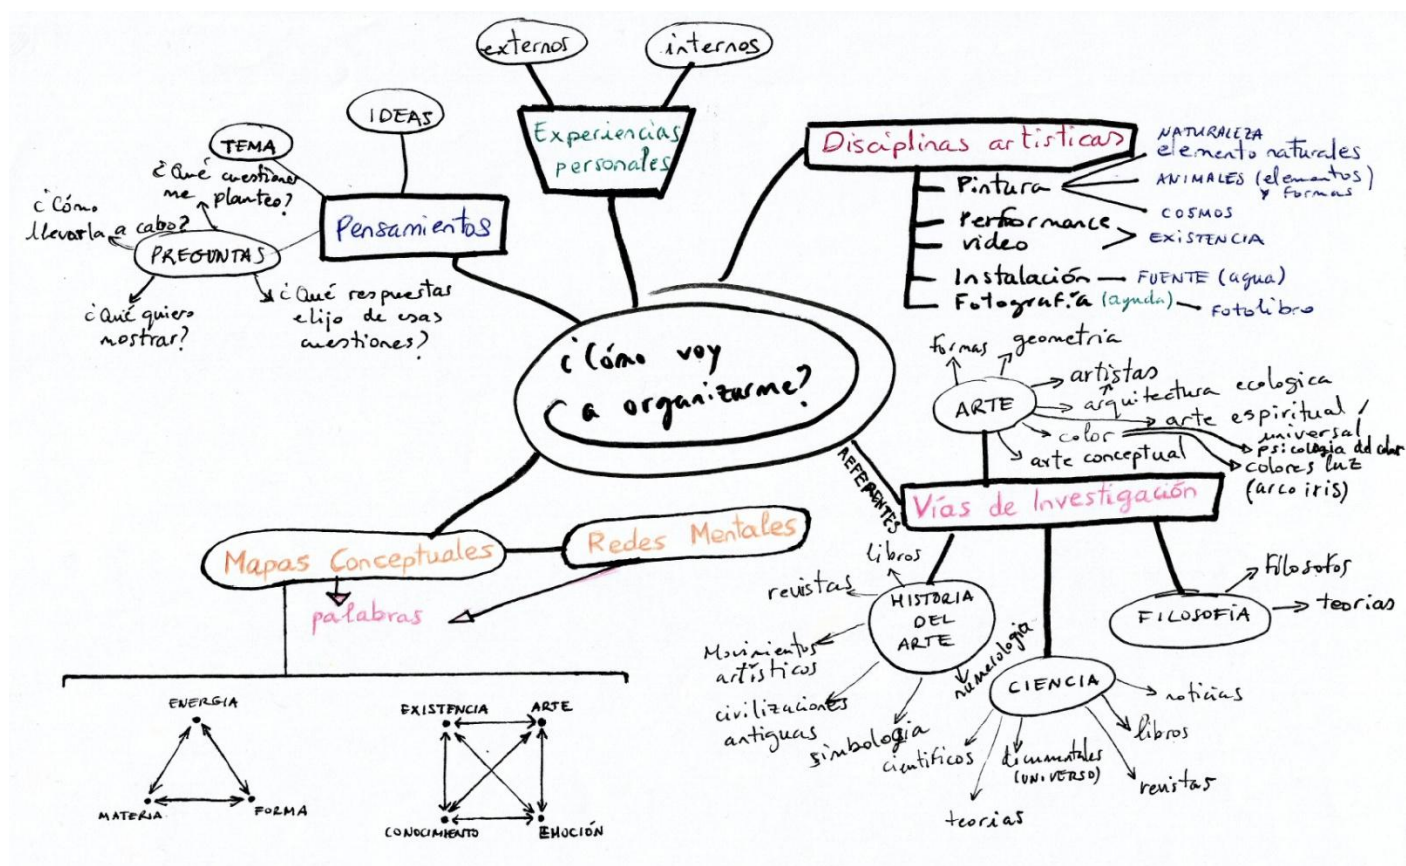 externos
internos
Experiencias
personales
IDEAS
TEMA
¿Qué cuestiones
me planteo?
¿Cómo
llevarla a cabo?
PREGUNTAS
Pensamientos
¿Qué quiero
mostrar?
¿Qué respuestas
elijo de esas
cuestiones?
Disciplinas artísticas
Pintura
NATURALEZA
elemento naturales
ANIMALES (elementos)
y formas
COSMOS
Performance
video
EXISTENCIA
Instalación
FUENTE (agua)
Fotografía (ayuda)
Fotolibro
¿Cómo voy
a organizarme?
REFERENTES
formas
geometria
ARTE
artistas
arquitectura ecologica
arte espiritual
universal
color
psicologia del color
colores luz
(arco iris)
arte conceptual
Vías de Investigación
Mapas Conceptuales
Redes Mentales
palabras
libros
revistas
HISTORIA
DEL
ARTE
Movimientos
artísticos
civilizaciones
antiguas
simbología
numerología
CIENCIA
noticias
libros
revistas
documentales
(UNIVERSO)
científicos
teorias
FILOSOFÍA
Filosofos
teorias
ENERGIA
MATERIA
FORMA
EXISTENCIA
ARTE
CONOCIMIENTO
EMOCIÓN